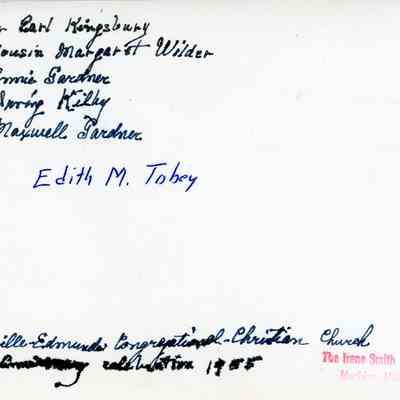 Earl Kingsbury
ousin Margaret Wilder
nnie Gardner
rving Kilby
Maxwell Gardner
Edith M. Tobey
ille-Edmunds Congregational-Christian Church
celebration 1955
The Irene Smith